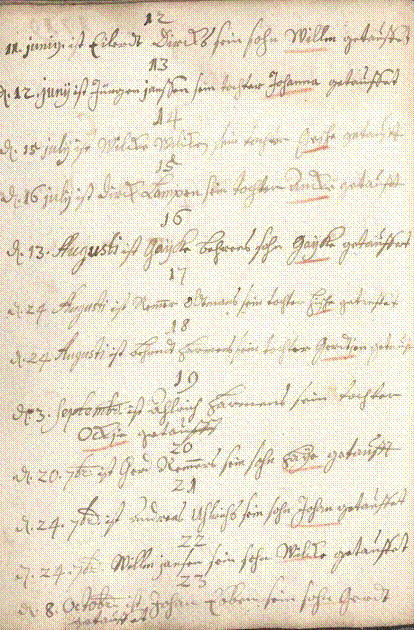 12
11. juny ist Eilerdt Dircks sein sohn Willm getauffet
13
d. 12. juny ist Jürgen janssen sein tochter Johanna getauffet
14
d. 15 july ist Wilcke Wilcken sein tochter getaufft
15
d. 16 july ist dirck Lampen sein tochter Ancke getaufft
16
d. 13. Augusti ist Gayke Behrens sohn Gayke getauffet
17
d. 24 Augusti ist Remmer Oltmans sein tochter getauffet
18
d. 24 Augusti ist Behrend Harmens sein tochter Gerdtjen getaufft
19
d. 3. Septembr ist Ahlrich Harmens sein tochter
Ockje getaufft
20
d. 20. 7br ist Gerd Remmers sein sohn Haye getaufft
21
d. 24. 7br ist andreas Uhlrichs sein sohn Johan getauffet
22
d. 24. 7br Willm jansen sein sohn Wilcke getauffet
23
d. 8. Octobr ist Johan Eben sein sohn Gerdt
getauffet